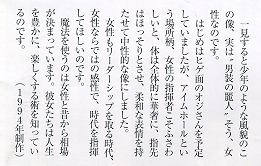 一見すると少年のような風貌のこ
の像、実は〝男装の麗人〟そう、女
性なのです。
はじめはヒゲ面のオジさんを予定
していましたが、アイムホールとい
う場所柄、女性の指揮者こそふさわ
しいと、体は全体的に華奢に、指先
はほっそりとさせ、柔和な表情を持
たせて中性的な像にしました。
女性もリーダーシップを取る時代、
女性ならではの感性で、時代を指揮
してほしいのです。
魔法を使うのは女性と昔から相場
が決まっています。彼女たちは人生
を豊かに、楽しくする術を知ってい
るのです。
（１９９４年制作）